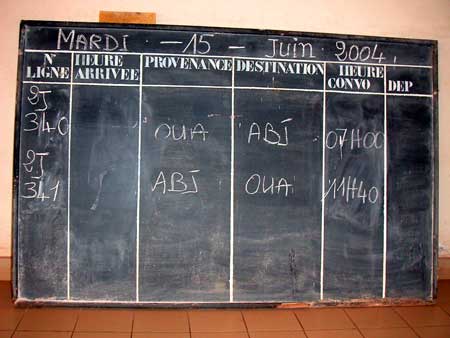 MARDI - 15 - Juin 2004.
N° LIGNE HEURE ARRIVEE PROVENANCE DESTINATION HEURE CONVO DEP
2J
340 OUA ABJ 07H00
2J
341 ABJ OUA 11H40